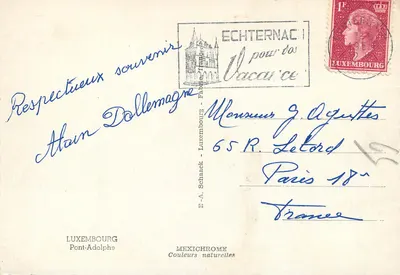 ECHTERNAC
pour vos
Vacances
1F
LUXEMBOURG
Respectueux souvenir
Alain Dallemagne
Monsieur G. Aguttes
65 R. Letord
Paris 18e
France
E.-A. Schaack - Luxembourg -
LUXEMBOURG
Pont-Adolphe
MEXICHROME
Couleurs naturelles